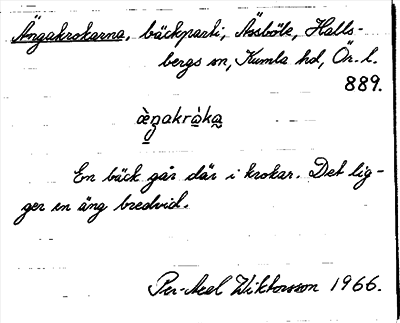 Ängakrokarna, bäckparti, Åssböle, Halls-
bergs sn, Kumla hd, Ör. l.
889.
æ̀ŋakrò̤ka̰
En bäck går där i krokar. Det lig-
ger en äng bredvid.
Per-Axel Wiktorsson 1966.